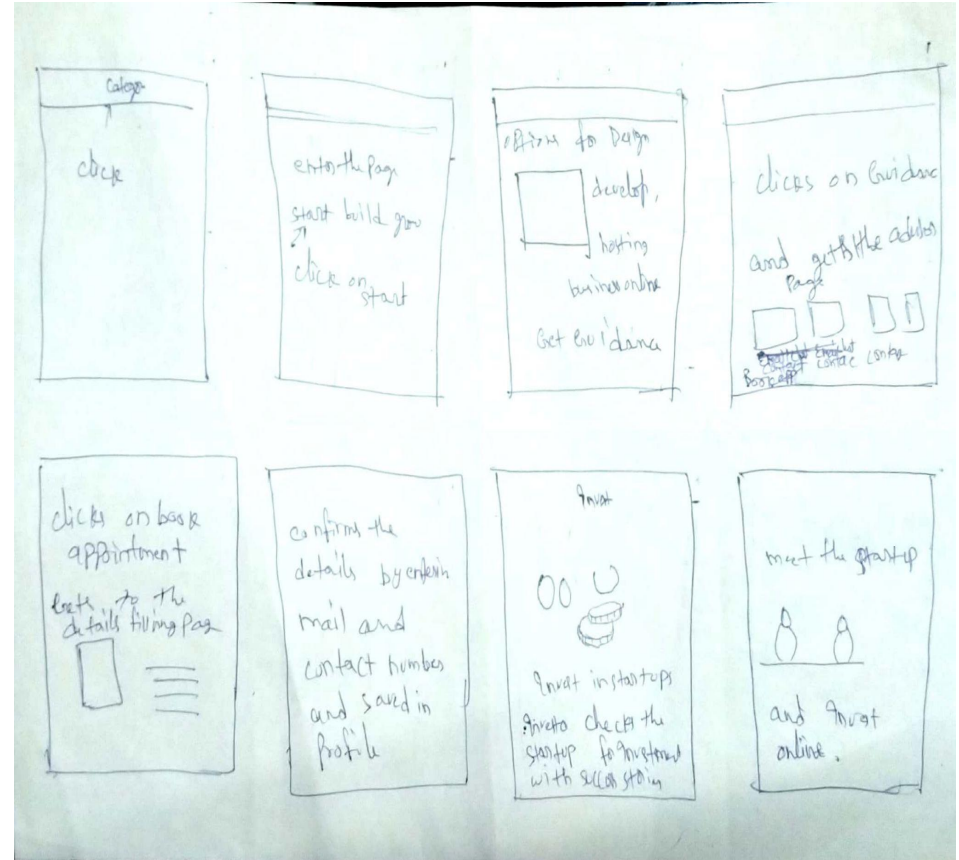 click
enter the Page
start build grow
click on
start
options for Design
develop,
hosting
business online
Get Guidance
clicks on Guidanc
and gets the
Page
contac
Book app
clicks on book
appointment
to the
details filling Page
confirms the
details by enterin
mail and
contact number
and saved in
Profile
Invest
Invest in startups
checks the
startup for
with success stories
meet the startup
and Invest
online.